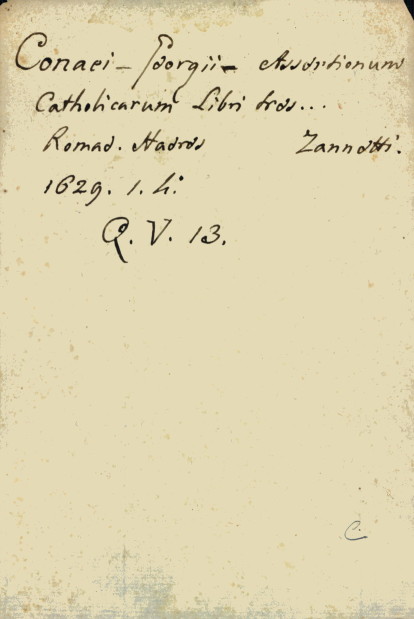 Conaei - Georgii - Assertionum
Catholicarum Libri tres...
Romae. Haeres Zannetti.
1629. 1. h:
Q. V. 13.
C.